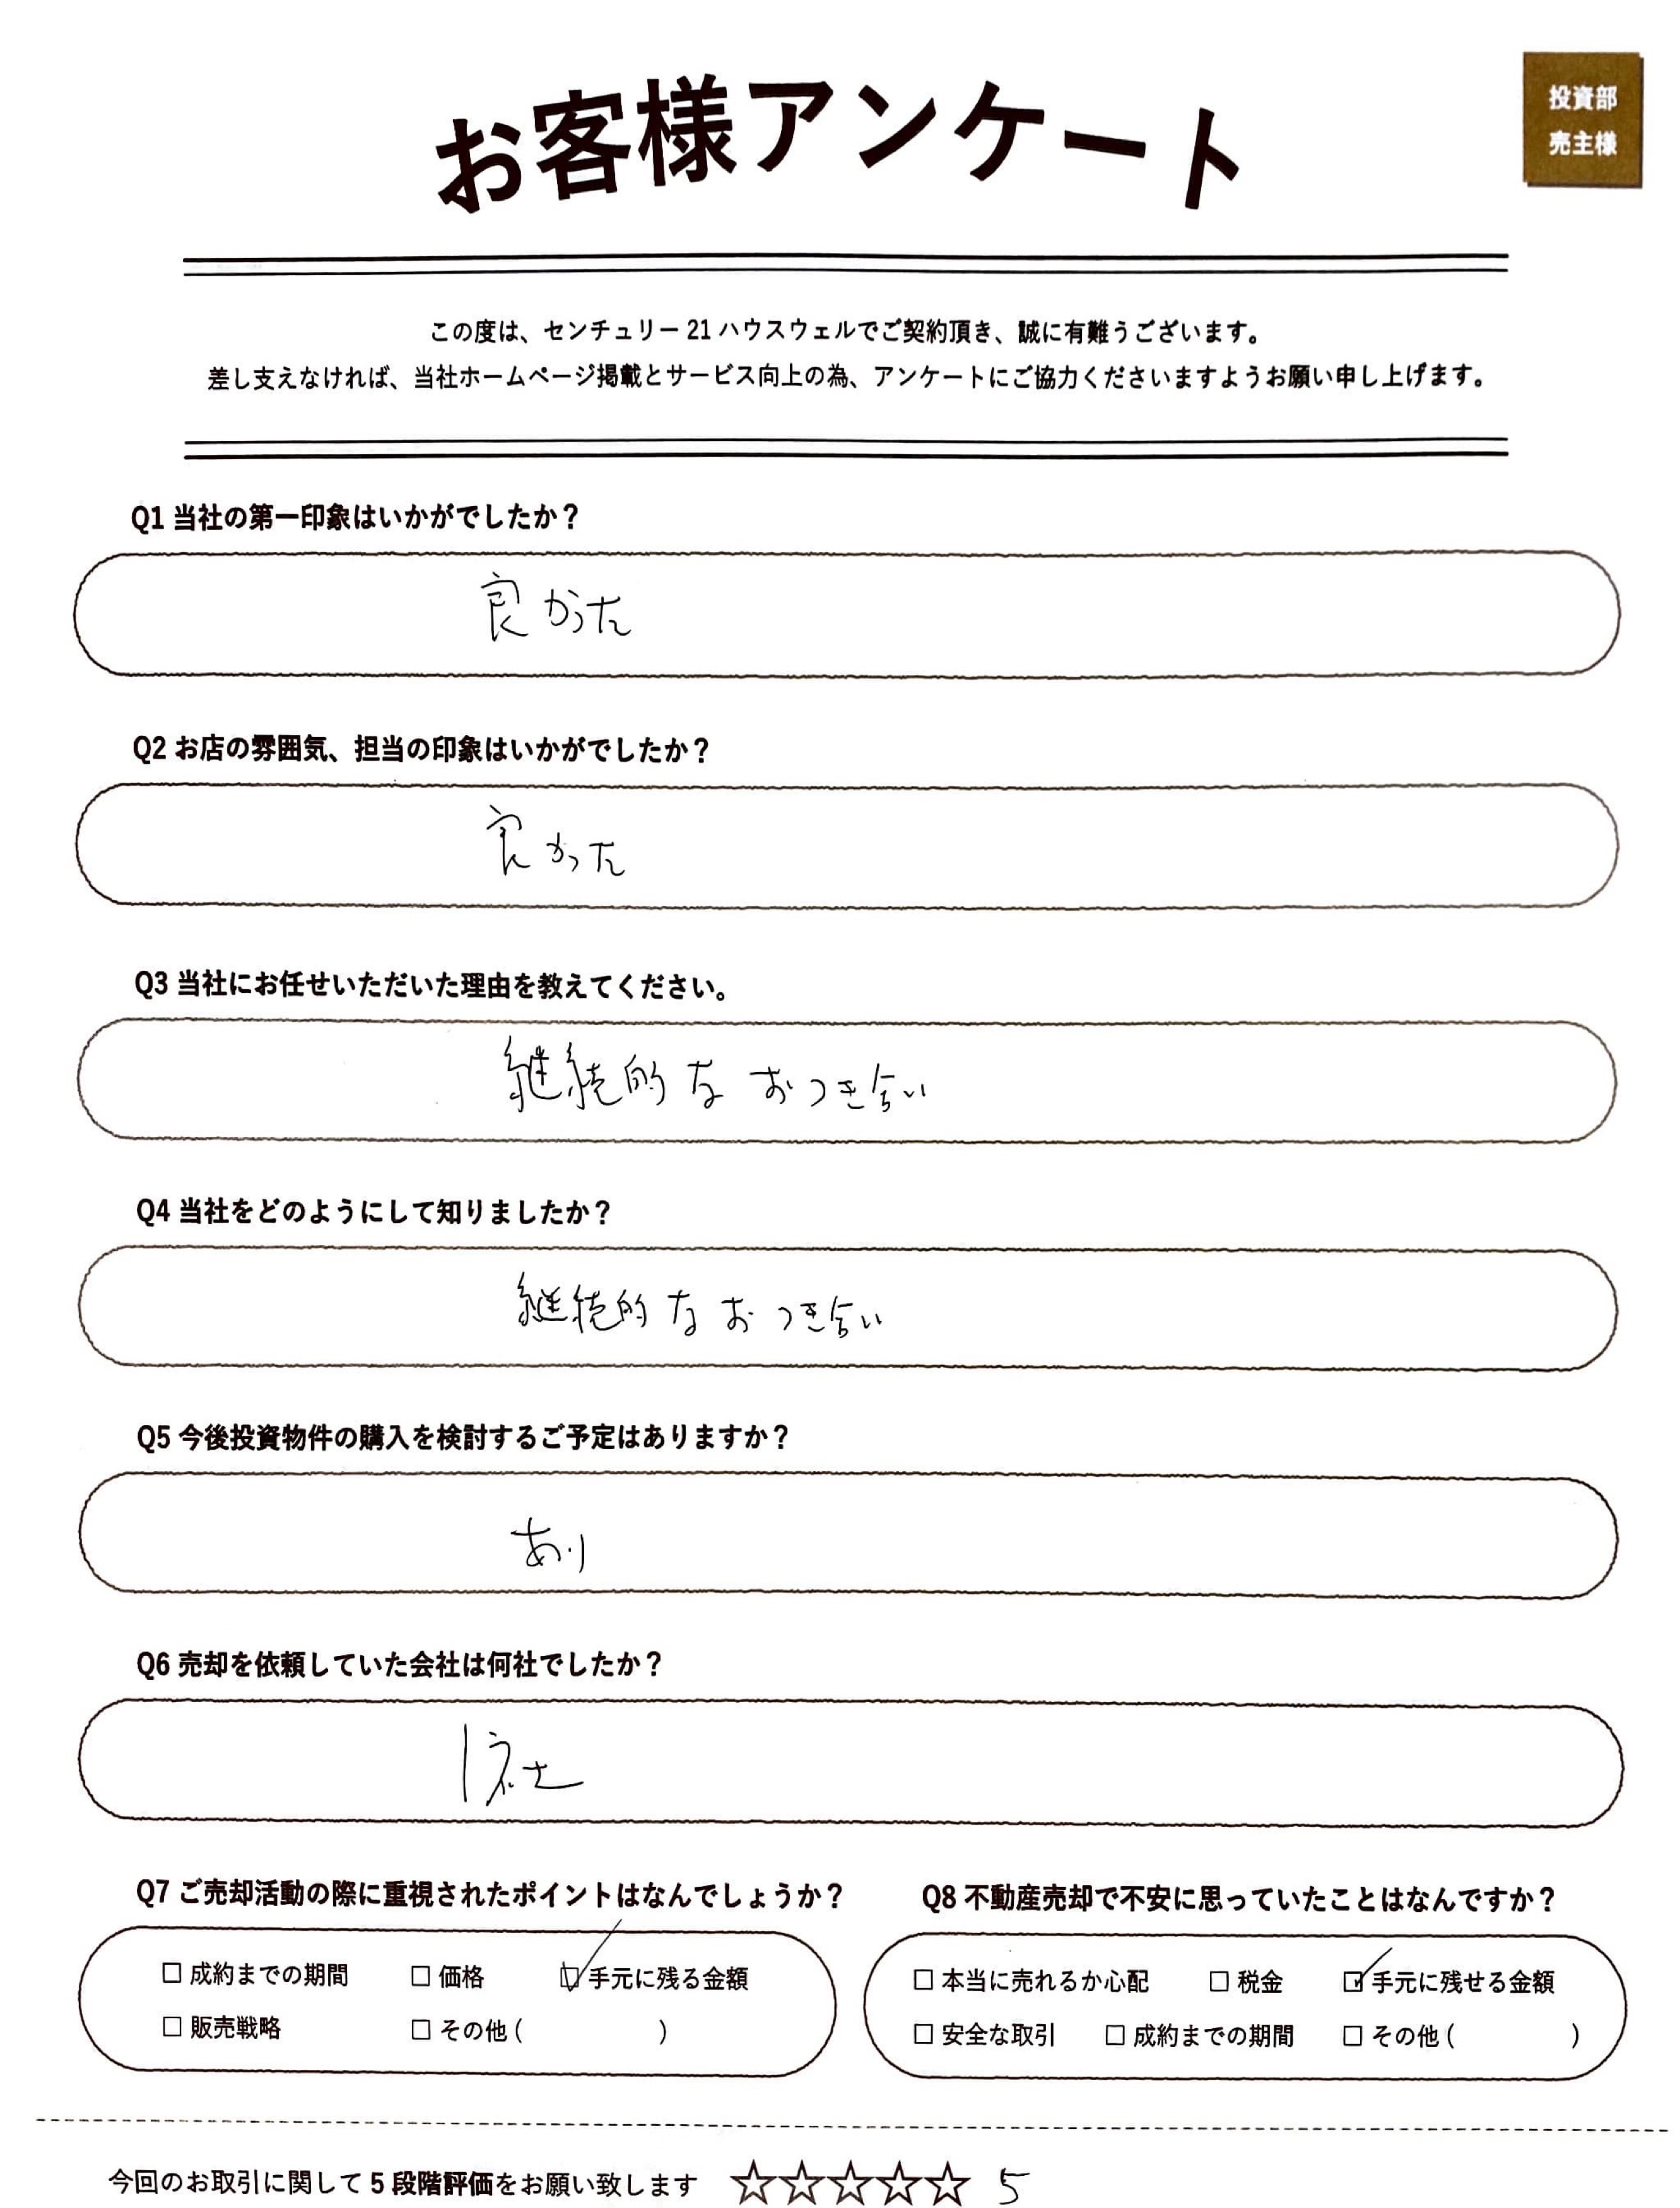 お客様アンケート
投資部
売主様
この度は、センチュリー21ハウスウェルでご契約頂き、誠に有難うございます。
差し支えなければ、当社ホームページ掲載とサービス向上の為、アンケートにご協力くださいますようお願い申し上げます。
Q1 当社の第一印象はいかがでしたか？
良かった
Q2 お店の雰囲気、担当の印象はいかがでしたか？
良かった
Q3 当社にお任せいただいた理由を教えてください。
継続的なおつき合い
Q4 当社をどのようにして知りましたか？
継続的なおつき合い
Q5 今後投資物件の購入を検討するご予定はありますか？
あり
Q6 売却を依頼していた会社は何社でしたか？
1社
Q7 ご売却活動の際に重視されたポイントはなんでしょうか？
□ 成約までの期間 □ 価格 ☑ 手元に残る金額
□ 販売戦略 □ その他 ( )
Q8 不動産売却で不安に思っていたことはなんですか？
□ 本当に売れるか心配 □ 税金 ☑ 手元に残せる金額
□ 安全な取引 □ 成約までの期間 □ その他 ( )
今回のお取引に関して 5 段階評価をお願い致します ☆☆☆☆☆ 5